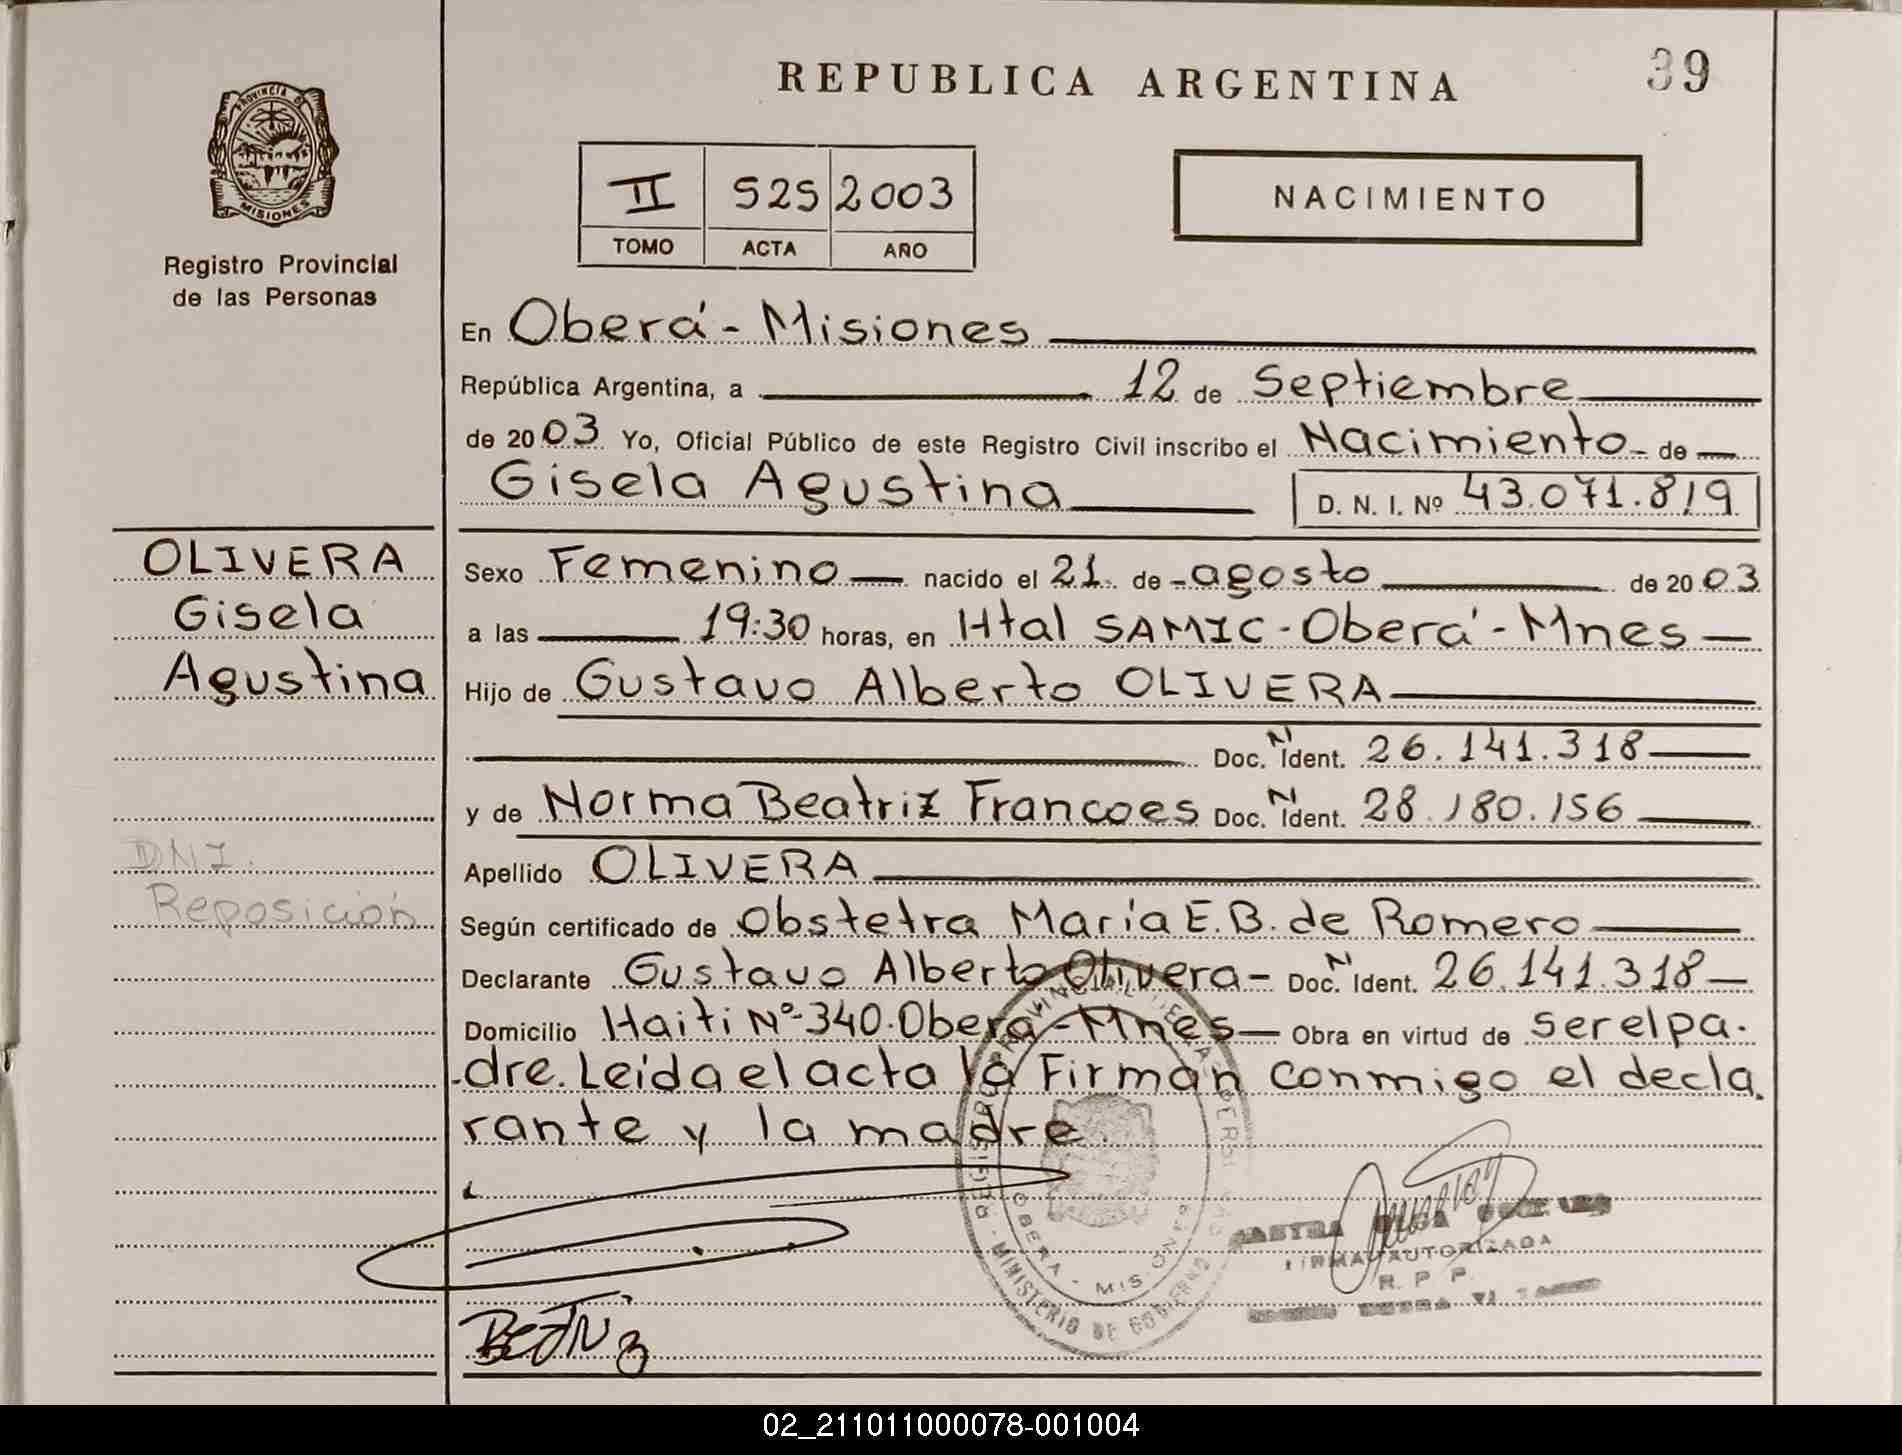 REPUBLICA ARGENTINA
39
PROVINCIA DE
MISIONES
Registro Provincial
de las Personas
II 525 2003
TOMO ACTA AÑO
NACIMIENTO
En Oberá - Misiones
República Argentina, a 12 de Septiembre
de 2003 Yo, Oficial Público de este Registro Civil inscribo el Nacimiento de
Gisela Agustina D. N. I. Nº 43.071.819
OLIVERA
Gisela
Agustina
DNI.
Reposición
Sexo Femenino nacido el 21 de agosto de 2003
a las 19:30 horas, en Htal SAMIC - Oberá - Mnes
Hijo de Gustavo Alberto OLIVERA
Doc. N Ident. 26.141.318
y de Norma Beatriz Francoes Doc. N Ident. 28.180.156
Apellido OLIVERA
Según certificado de Obstetra María E.B. de Romero
Declarante Gustavo Alberto Olivera - Doc. N Ident. 26.141.318
Domicilio Haiti Nº 340. Oberá - Mnes Obra en virtud de ser el pa.
dre. Leida el acta la Firman conmigo el decla
rante y la madre.
OBERA - MISIONES
MINISTERIO DE GOBIERNO
FIRMA AUTORIZADA
R. P. P.
02_211011000078-001004